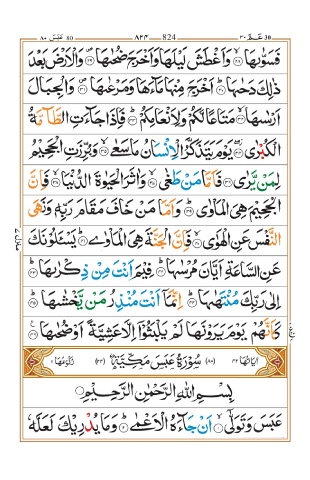 عبس ٨٠ 80 ٨٢٤ 824 عم ٣٠ 30
فَسَوّٰىهَا ۙ﴿۲۸﴾ وَاَغْطَشَ لَيْلَهَا وَاَخْرَجَ ضُحٰىهَا ﴿۲۹﴾ وَالْاَرْضَ بَعْدَ
ذٰلِكَ دَحٰىهَا ؕ﴿۳۰﴾ اَخْرَجَ مِنْهَا مَآءَهَا وَمَرْعٰىهَا ﴿۳۱﴾ وَالْجِبَالَ
اَرْسٰىهَا ۙ﴿۳۲﴾ مَتَاعًا لَّكُمْ وَلِاَنْعَامِكُمْ ؕ﴿۳۳﴾ فَاِذَا جَآءَتِ الطَّآمَّةُ
الْكُبْرٰى ﴿۳۴﴾ يَوْمَ يَتَذَكَّرُ الْاِنْسَانُ مَا سَعٰى ﴿۳۵﴾ وَبُرِّزَتِ الْجَحِيْمُ
لِمَنْ يَّرٰى ﴿۳۶﴾ فَاَمَّا مَنْ طَغٰى ﴿۳۷﴾ وَاٰثَرَ الْحَيٰوةَ الدُّنْيَا ﴿۳۸﴾ فَاِنَّ
الْجَحِيْمَ هِيَ الْمَاْوٰى ﴿۳۹﴾ وَاَمَّا مَنْ خَافَ مَقَامَ رَبِّهٖ وَنَهَى
النَّفْسَ عَنِ الْهَوٰى ﴿۴۰﴾ فَاِنَّ الْجَنَّةَ هِيَ الْمَاْوٰى ﴿۴۱﴾ يَسْـَٔلُوْنَكَ
عَنِ السَّاعَةِ اَيَّانَ مُرْسٰىهَا ﴿۴۲﴾ فِيْمَ اَنْتَ مِنْ ذِكْرٰىهَا ﴿۴۳﴾
اِلٰى رَبِّكَ مُنْتَهٰىهَا ﴿۴۴﴾ اِنَّمَآ اَنْتَ مُنْذِرُ مَنْ يَّخْشٰىهَا ﴿۴۵﴾
كَاَنَّهُمْ يَوْمَ يَرَوْنَهَا لَمْ يَلْبَثُوْٓا اِلَّا عَشِيَّةً اَوْ ضُحٰىهَا ﴿۴۶﴾
اٰيَاتُهَا ٤٢ (٨٠) سُوْرَةُ عَبَسَ مَكِّيَّةٌ (٢٤) رُكُوْعُهَا ١
بِسْمِ اللّٰهِ الرَّحْمٰنِ الرَّحِيْمِ
عَبَسَ وَتَوَلّٰٓى ﴿۱﴾ اَنْ جَآءَهُ الْاَعْمٰى ﴿۲﴾ وَمَا يُدْرِيْكَ لَعَلَّهٗ